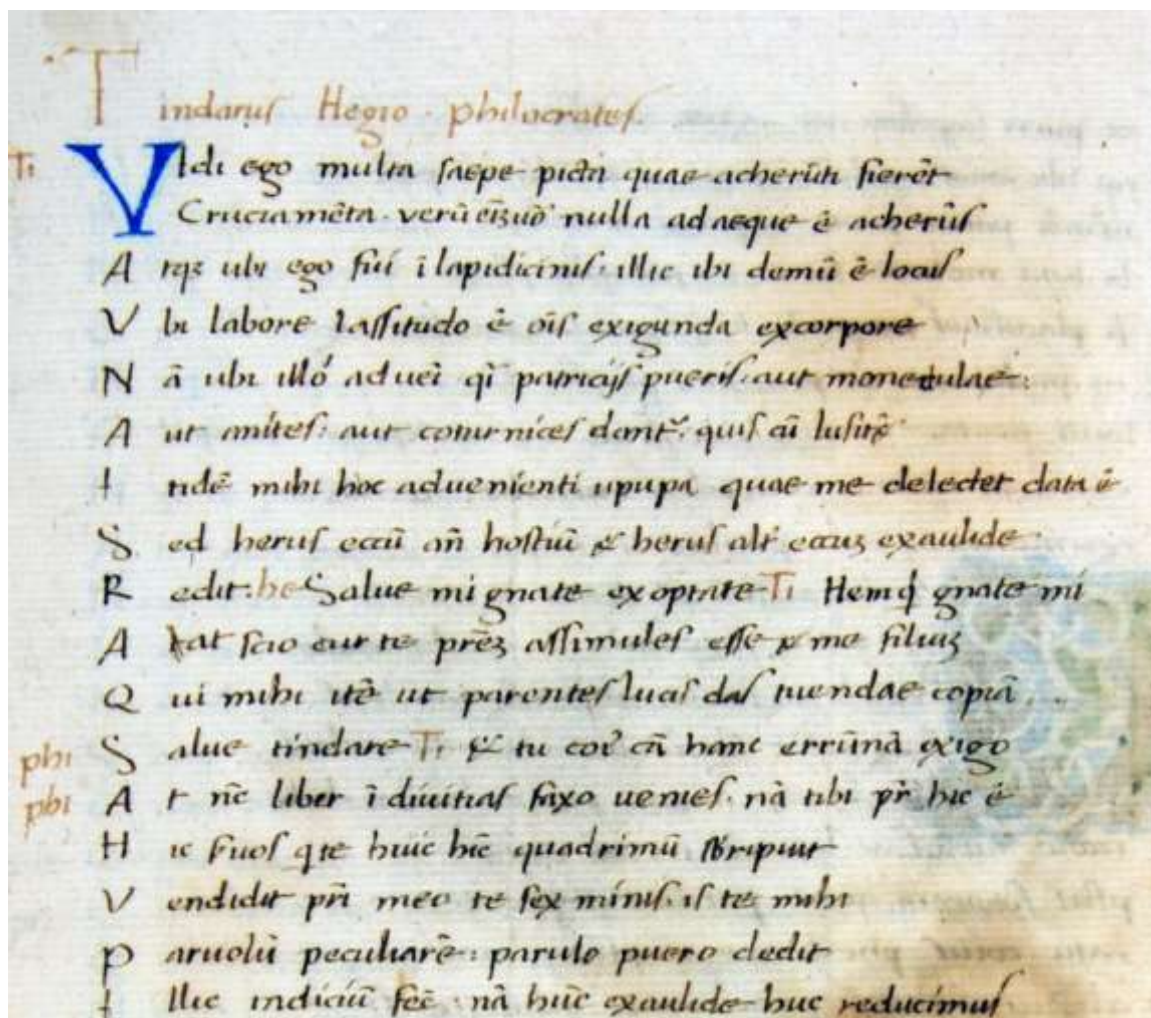 Tindarus Hegio · philocrates.
Ti VIdi ego multa saepe picta quae acherūti fierēt
Cruciamēta · verū nulla adaeque ē acherūs
Atqꝫ ubi ego fui ī lapidicinis · illic ibi demū ē locus
Vbi labore lassitudo ē oīs exigunda excorpore
Nā ubi illo aduei patricijs pueris · aut monedulae ·
Aut anites · aut coturnices dant · quis cū lusitē
Itidē mihi hoc aduenienti upupa quae me delectet data ē
Sed herus eccū añ hostiū & herus alt̄ eccuꝫ exaulide
Redit · he Salue mi gnate exoptate Ti Hem gnate mi
Attat scio cur te assimules esse filiuꝫ
Qui mihi itē ut parentes lucis das tuendae copiā
phi Salue tindare Ti & tu cā hanc errūnā exigo
phi At nc̄ liber ī diuitias faxo uenies · nā tibi pr̄ hic ē
Hic seruos q te huic hīc quadrimū surripuit
Vendidit pr̄i meo te sex minis · is te mihi
Paruolū peculiarē · parulo puero dedit
Illic indiciū fēc · nā hūc exaulide huc reducimus